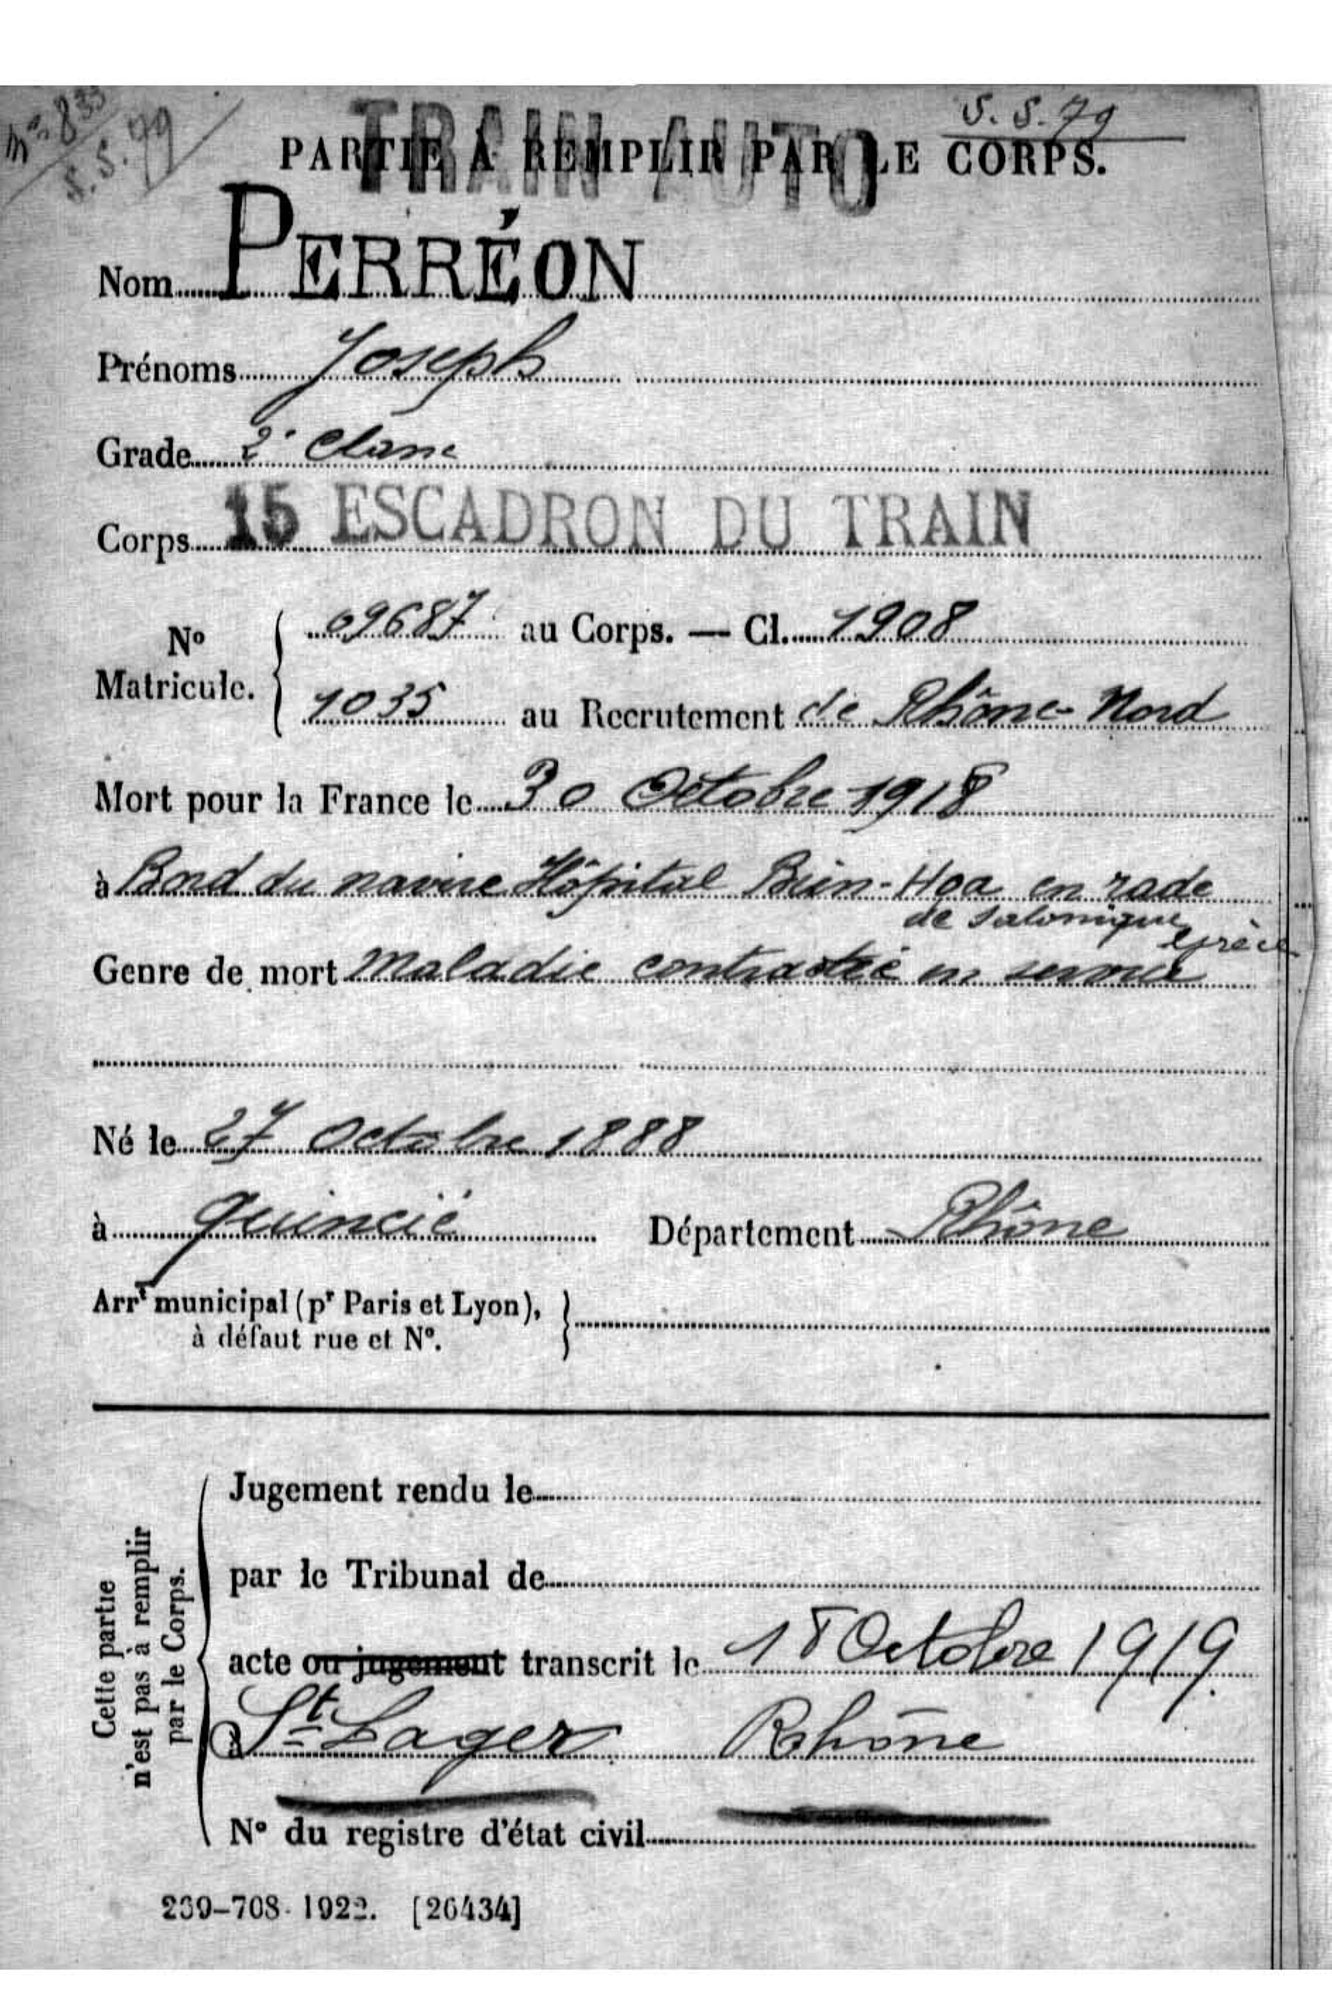 S. S. 99
S. S. 79
TRAIN AUTO
PARTIE À REMPLIR PAR LE CORPS.
Nom PERRÉON
Prénoms Joseph
Grade 2e Classe
Corps 15 ESCADRON DU TRAIN
No Matricule. 09687 au Corps. — Cl. 1908
1035 au Recrutement de Rhône-Nord
Mort pour la France le 30 Octobre 1918
à Bord du navire Hôpital Bien-Hoa en rade
de Salonique
Grèce
Genre de mort Maladie contractée en service
Né le 27 Octobre 1888
à Quincié Département Rhône
Arrt municipal (pr Paris et Lyon),
à défaut rue et No.
Cette partie
n'est pas à remplir
par le Corps.
Jugement rendu le
par le Tribunal de
acte ou jugement transcrit le 18 Octobre 1919.
à St Lager Rhône
No du registre d'état civil
239-708-1922. [26434]